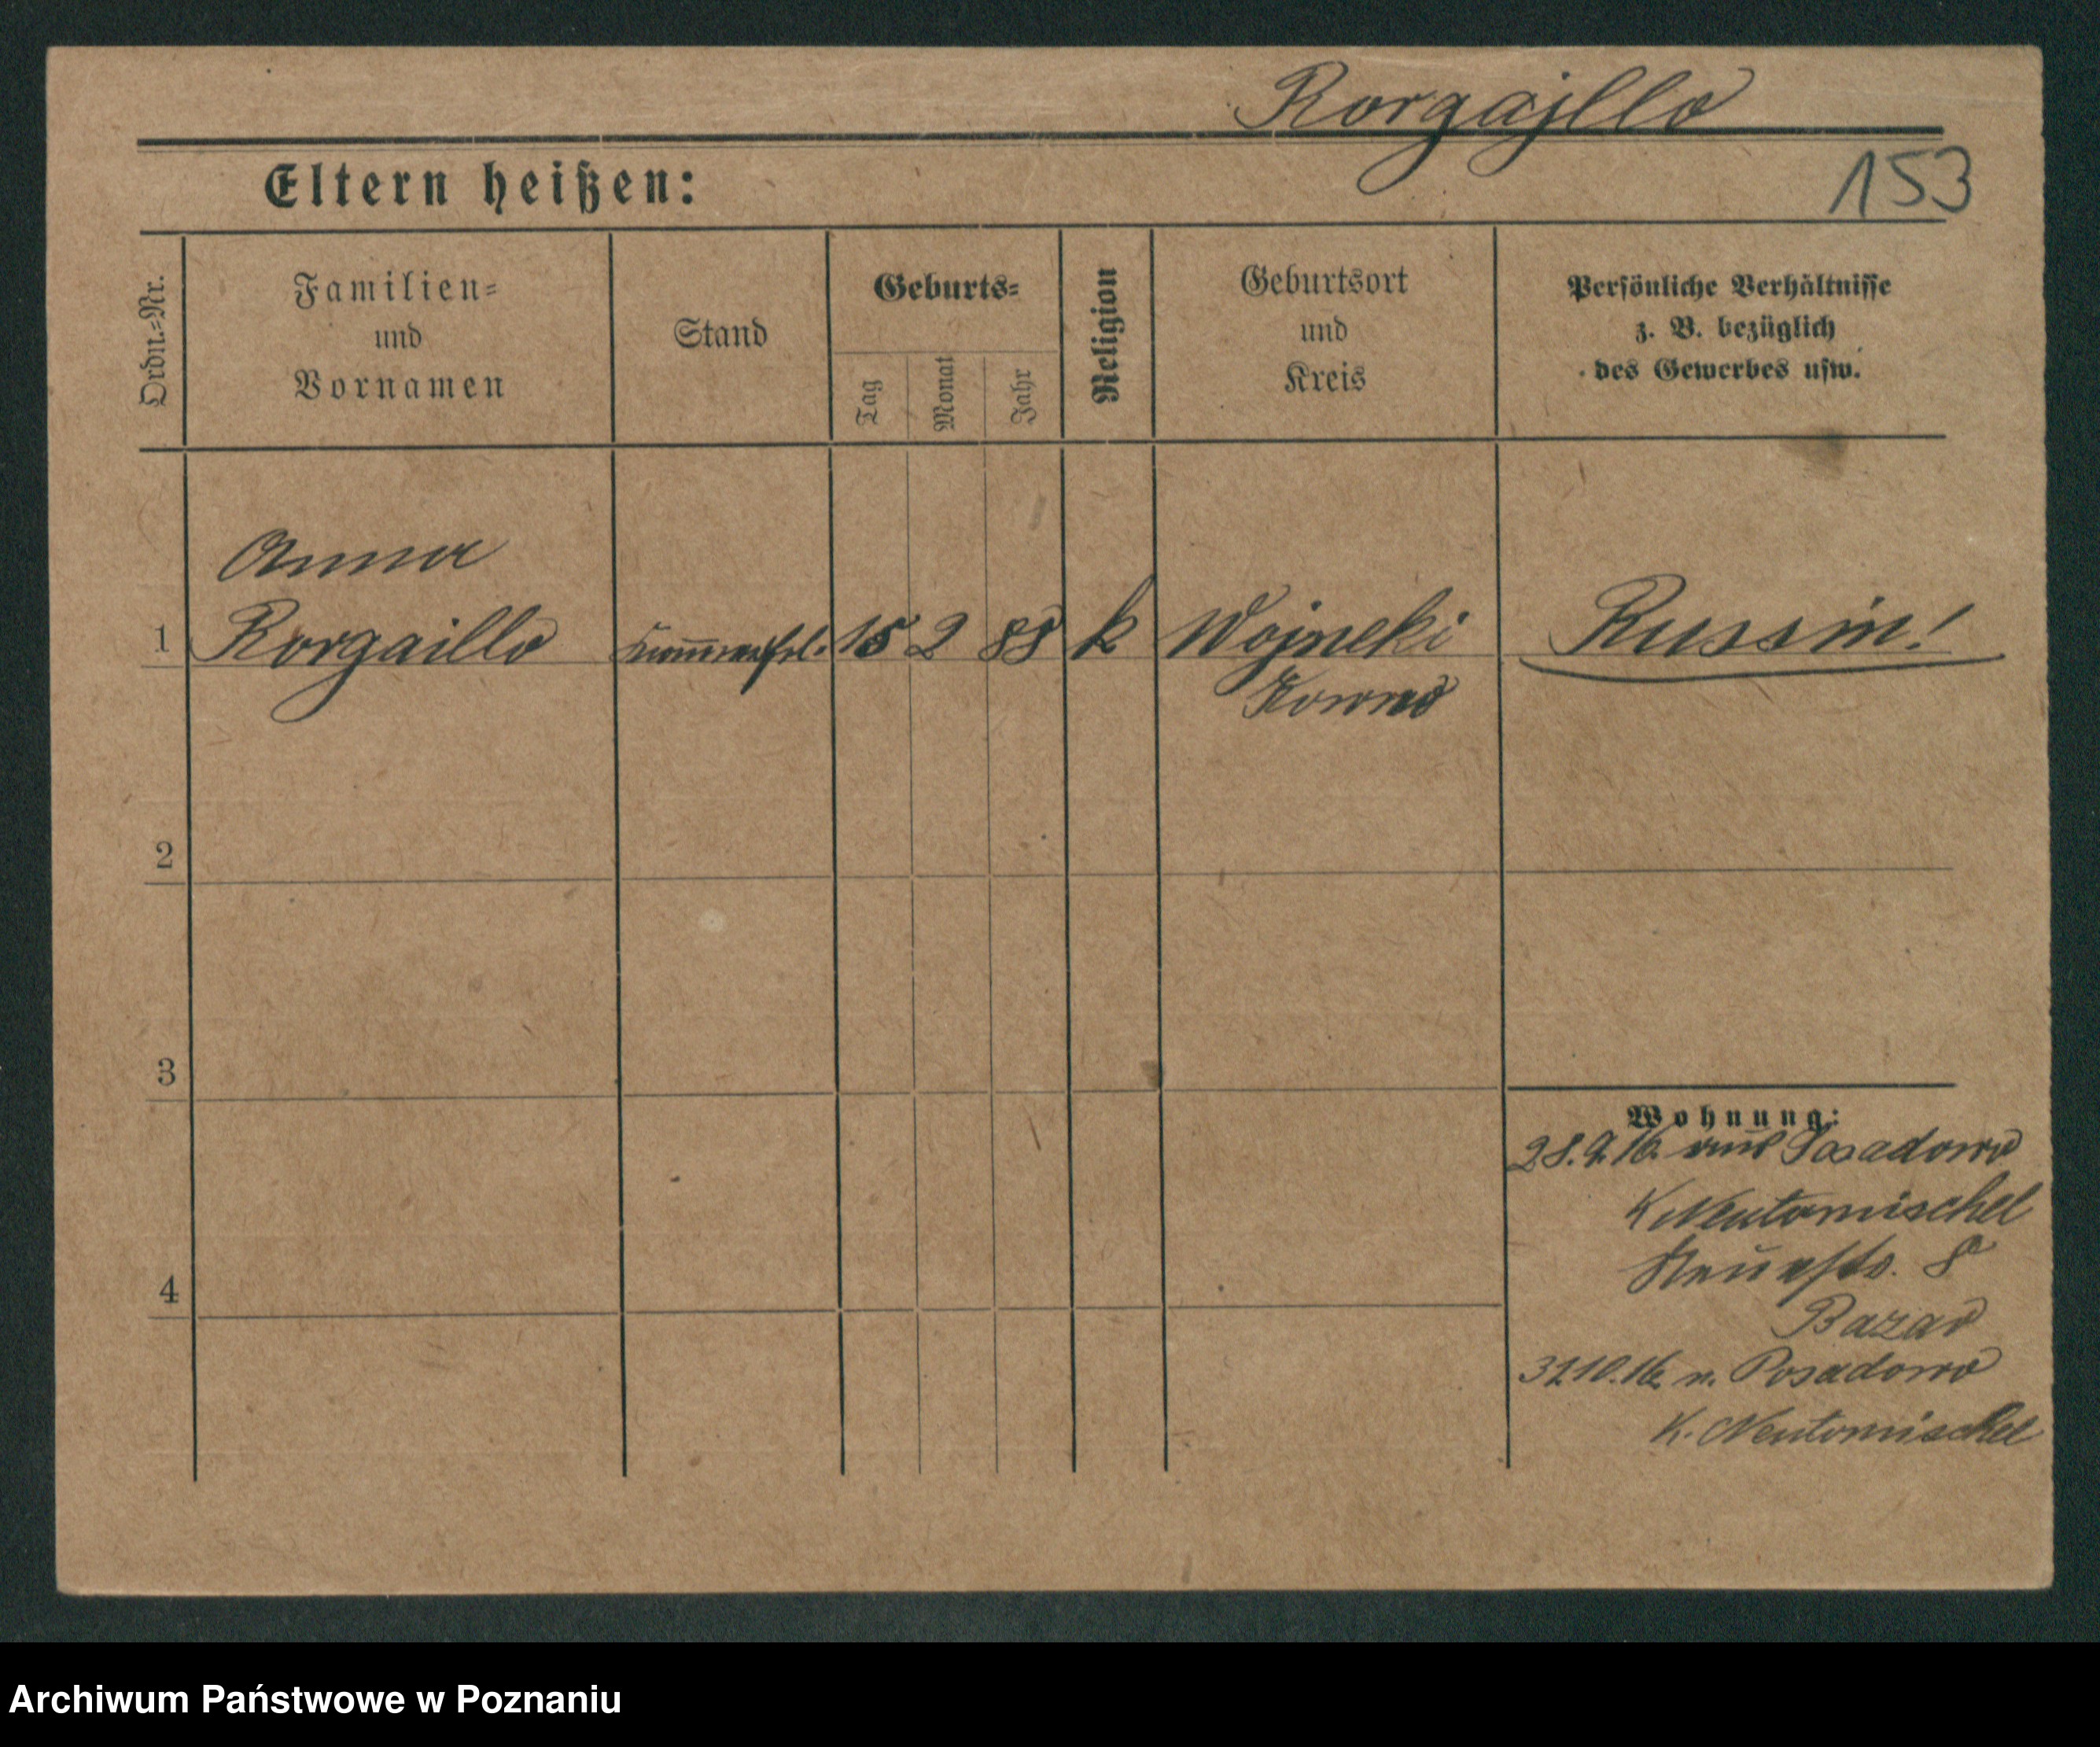 Rorgajllo
153
Eltern heißen:
Ordn.=Nr.
Familien=
und
Vornamen
Stand
Geburts=
Tag
Monat
Jahr
Religion
Geburtsort
und
Kreis
Persönliche Verhältnisse
z. B. bezüglich
des Gewerbes usw.
Anna
1 Rorgaillo 15 2 88 k Russin!
Kowno
2
3
4
Wohnung:
28.9.16. aus Posadowo
K Neutomischel
Neuestr. 8
Bazar
31.10.16. n. Posadowo
K. Neutomischel
Archiwum Państwowe w Poznaniu